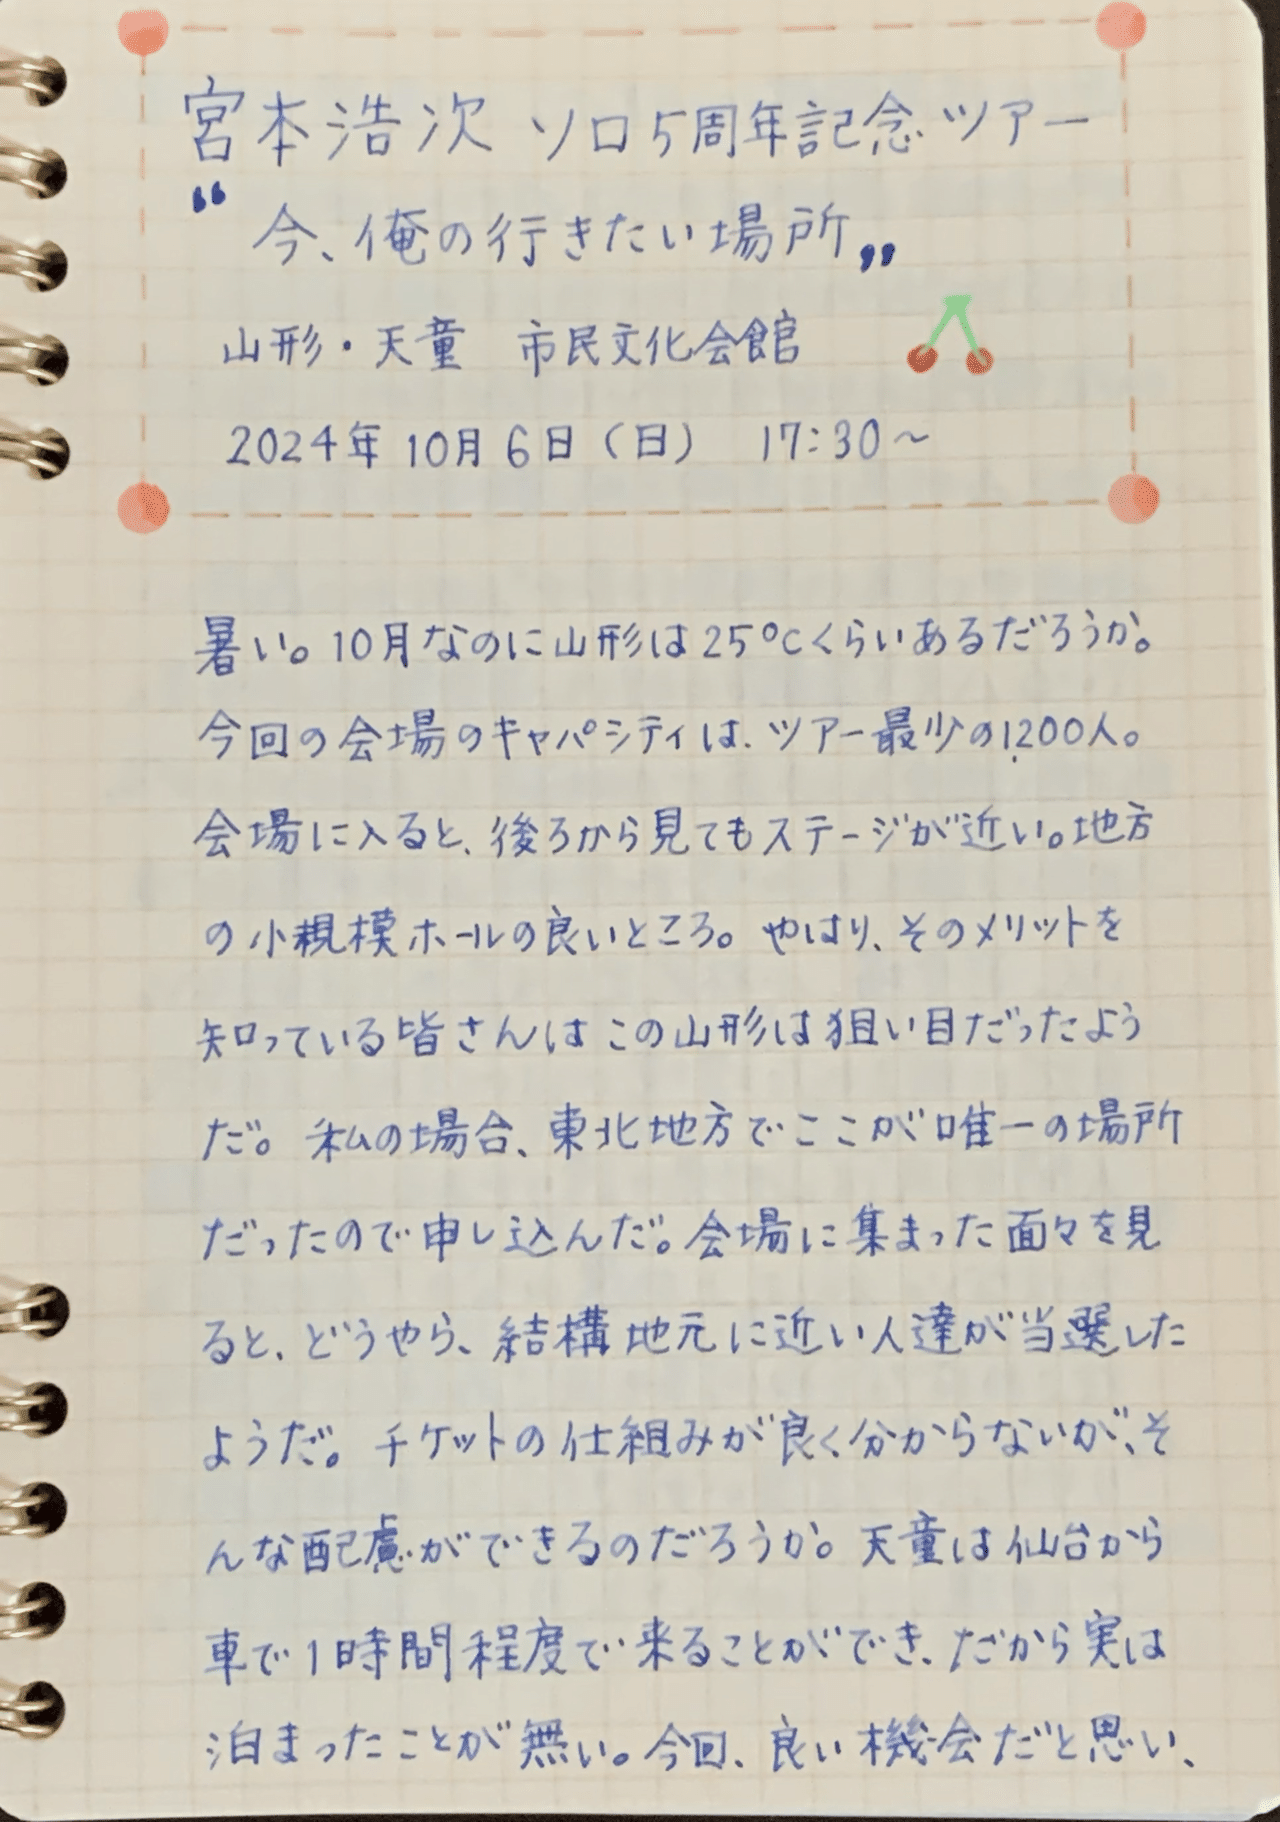 宮本浩次 ソロ5周年記念ツアー
“今、俺の行きたい場所”
山形・天童 市民文化会館
2024年10月6日(日) 17:30~
暑い。10月なのに山形は25℃くらいあるだろうか。
今回の会場のキャパシティは、ツアー最少の1,200人。
会場に入ると、後ろから見てもステージが近い。地方
の小規模ホールの良いところ。やはり、そのメリットを
知っている皆さんはこの山形は狙い目だったよう
だ。私の場合、東北地方でここが唯一の場所
だったので申し込んだ。会場に集まった面々を見
ると、どうやら、結構地元に近い人達が当選した
ようだ。チケットの仕組みが良く分からないが、そ
んな配慮ができるのだろうか。天童は仙台から
車で1時間程度で来ることができ、だから実は
泊まったことが無い。今回、良い機会だと思い、